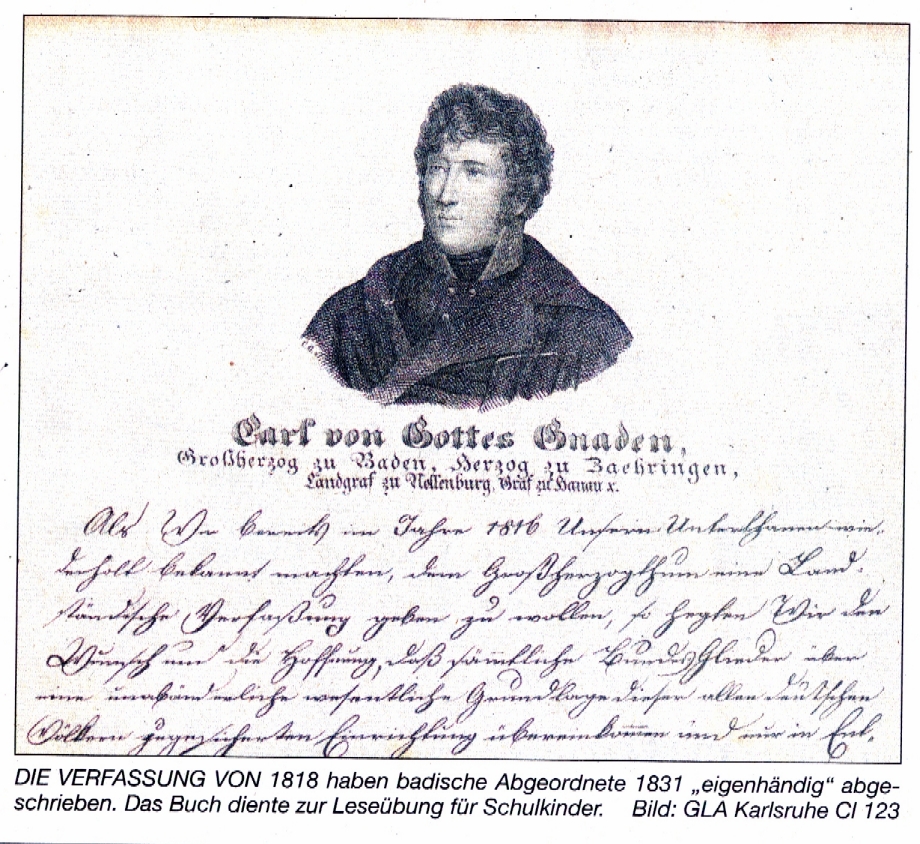 Carl von Gottes Gnaden,
Großherzog zu Baden, Herzog zu Zaehringen,
Landgraf zu Nellenburg, Graf zu Hanau x.
Als Wir bereits im Jahre 1816 Unsern Unterthanen wie-
derholt bekannt machten, dem Großherzogthum eine Land-
ständische Verfaßung geben zu wollen, so hegten Wir den
Wunsch und die Hoffnung, daß sämmtliche BundesGlieder über
eine unabänderliche wesentliche Grundlage dieser allen deutschen
Völkern zugesicherten Einrichtung übereinkommen und nur in Ent-
DIE VERFASSUNG VON 1818 haben badische Abgeordnete 1831 „eigenhändig“ abge-
schrieben. Das Buch diente zur Leseübung für Schulkinder. Bild: GLA Karlsruhe CI 123